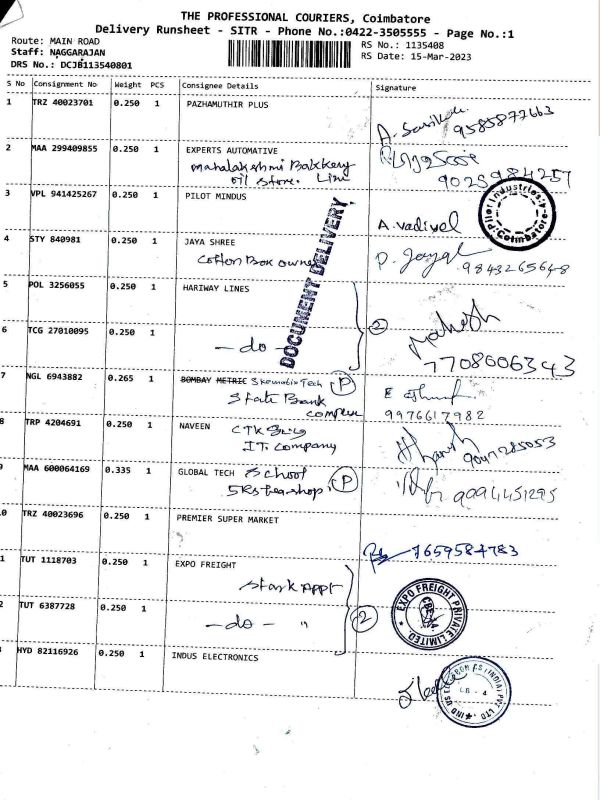 THE PROFESSIONAL COURIERS, Coimbatore
Delivery Runsheet - SITR - Phone No.:0422-3505555 - Page No.:1
Route: MAIN ROAD
Staff: NAGGARAJAN
DRS No.: DCJB113540801
RS No.: 1135408
RS Date: 15-Mar-2023
S No Consignment No Weight PCS Consignee Details Signature
1 TRZ 40023701 0.250 1 PAZHAMUTHIR PLUS
9585877663
2 MAA 299409855 0.250 1 EXPERTS AUTOMATIVE
mahalakshmi Bakkery
oil store. Line
9025984257
3 VPL 941425267 0.250 1 PILOT MINDUS
A.vadivel
Coimbatore
4 STY 840981 0.250 1 JAYA SHREE
Cotton Box owner
9843265648
DOCUMENT DELIVERY
5 POL 3256055 0.250 1 HARIWAY LINES
2
Mahesh
6 TCG 27010095 0.250 1
- do -
7708006343
7 NGL 6943882 0.265 1 BOMBAY METRIC Tech P
State Bank
complex
9976617982
8 TRP 4204691 0.250 1 NAVEEN CTK
IT. Company
9047285053
9 MAA 600064169 0.335 1 GLOBAL TECH School
teashop P
9094451295
0 TRZ 40023696 0.250 1 PREMIER SUPER MARKET
7659584783
1 TUT 1118703 0.250 1 EXPO FREIGHT
Appt
EXPO FREIGHT PRIVATE LIMITED
2 TUT 6387728 0.250 1
- do - "
2
HYD 82116926 0.250 1 INDUS ELECTRONICS